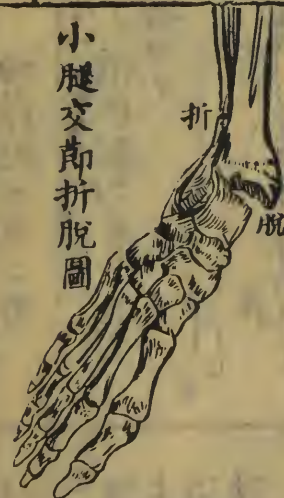 小腿交節折脫圖
折
脫